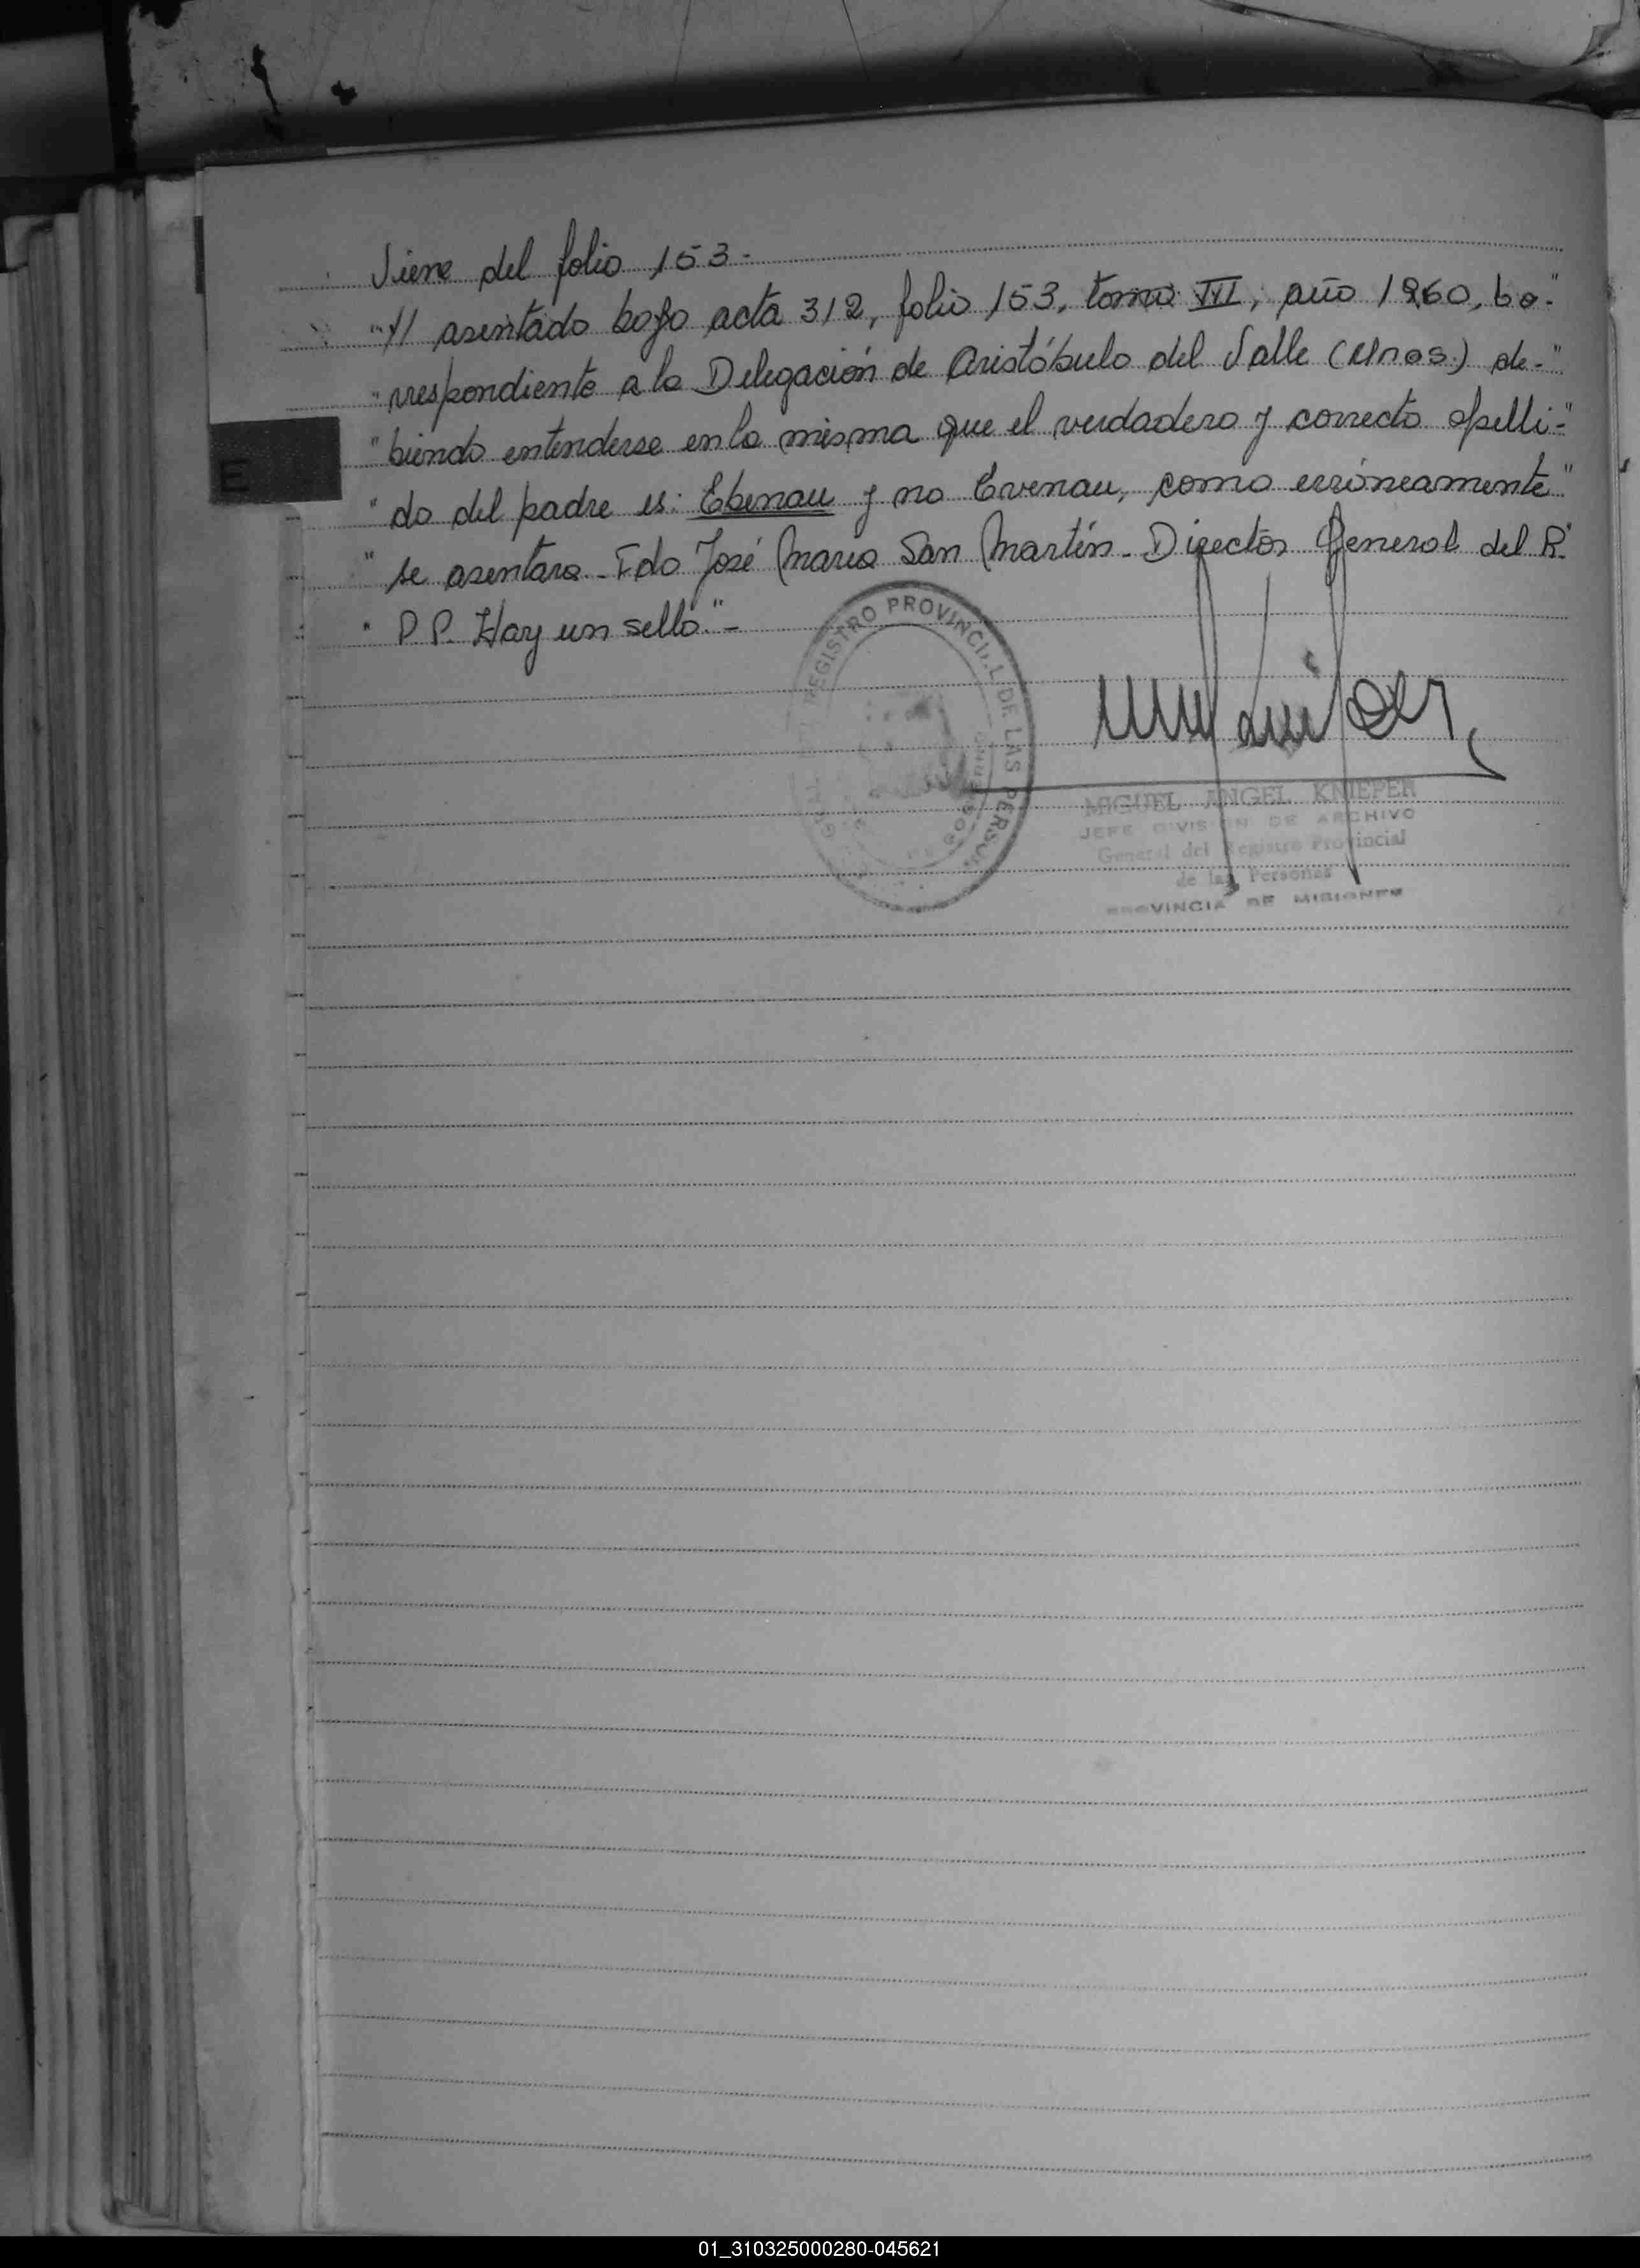 Viene del folio 153.-
"y/ asentado bajo acta 312, folio 153, tomo VII, año 1960, co-"
"rrespondiente a la Delegación de Aristóbulo del Valle (Mnes.) de-"
"biendo entenderse en la misma que el verdadero y correcto apelli-"
"do del padre es: Ebenau y no Evenau, como erróneamente"
"se asentara.- Fdo José Maria San Martín - Director General del R."
"P.P. Hay un sello."-
REGISTRO PROVINCIAL DE LAS PERSON
MIGUEL ANGEL KNIEPER
JEFE DIVISION DE ARCHIVO
General del Registro Provincial
de las Personas
PROVINCIA DE MISIONES
E
01_310325000280-045621